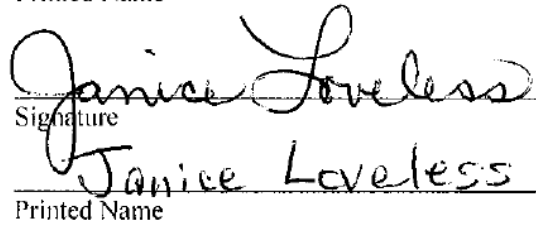 Printed Name
Janice Loveless
Signature
Janice Loveless
Printed Name